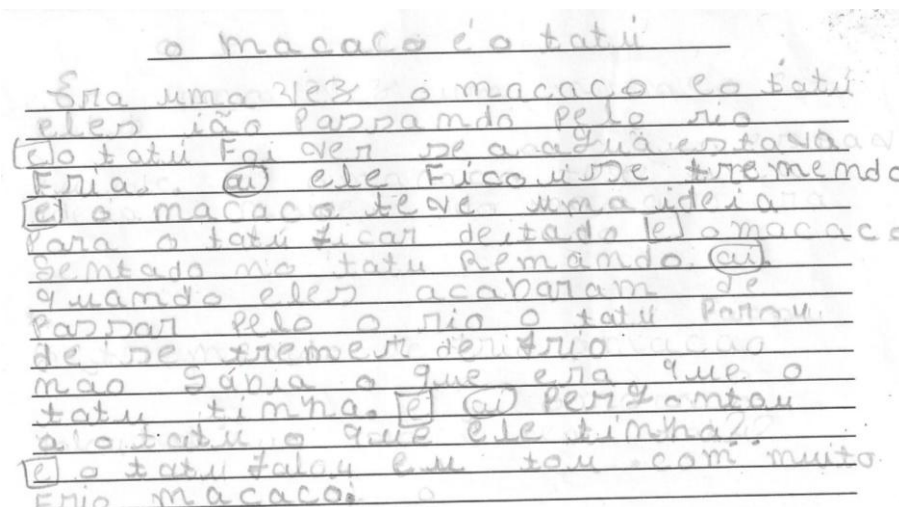 o macaco é o tatú
Era uma vez o macaco e o tatú
eles ião Passando Pelo rio
e o tatú Foi ver se a nagua estava
Fria. ai ele Ficouse tremendo
e o macaco teve uma ideia
Para o tatú ficar deitado e o macaco
Sentado no tatu Remando. ai.
quando eles acabaram de
Passar Pelo o rio o tatu Parou
de se tremer de frio
não Sábia o que era que o
tatu tinha. e ai Pergontou
a o tatu o que ele tinha?
e o tatu falou eu tou com muito
Frio macaco.